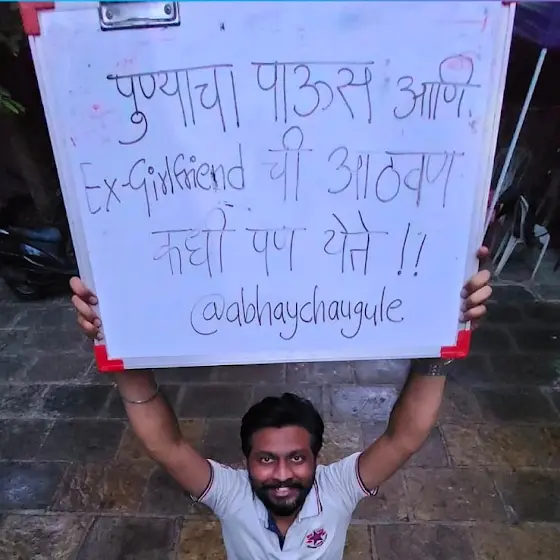 पुण्याचा पाऊस आणि
Ex-Girlfriend ची आठवण
कधी पण येते !!
@abhaychaugule